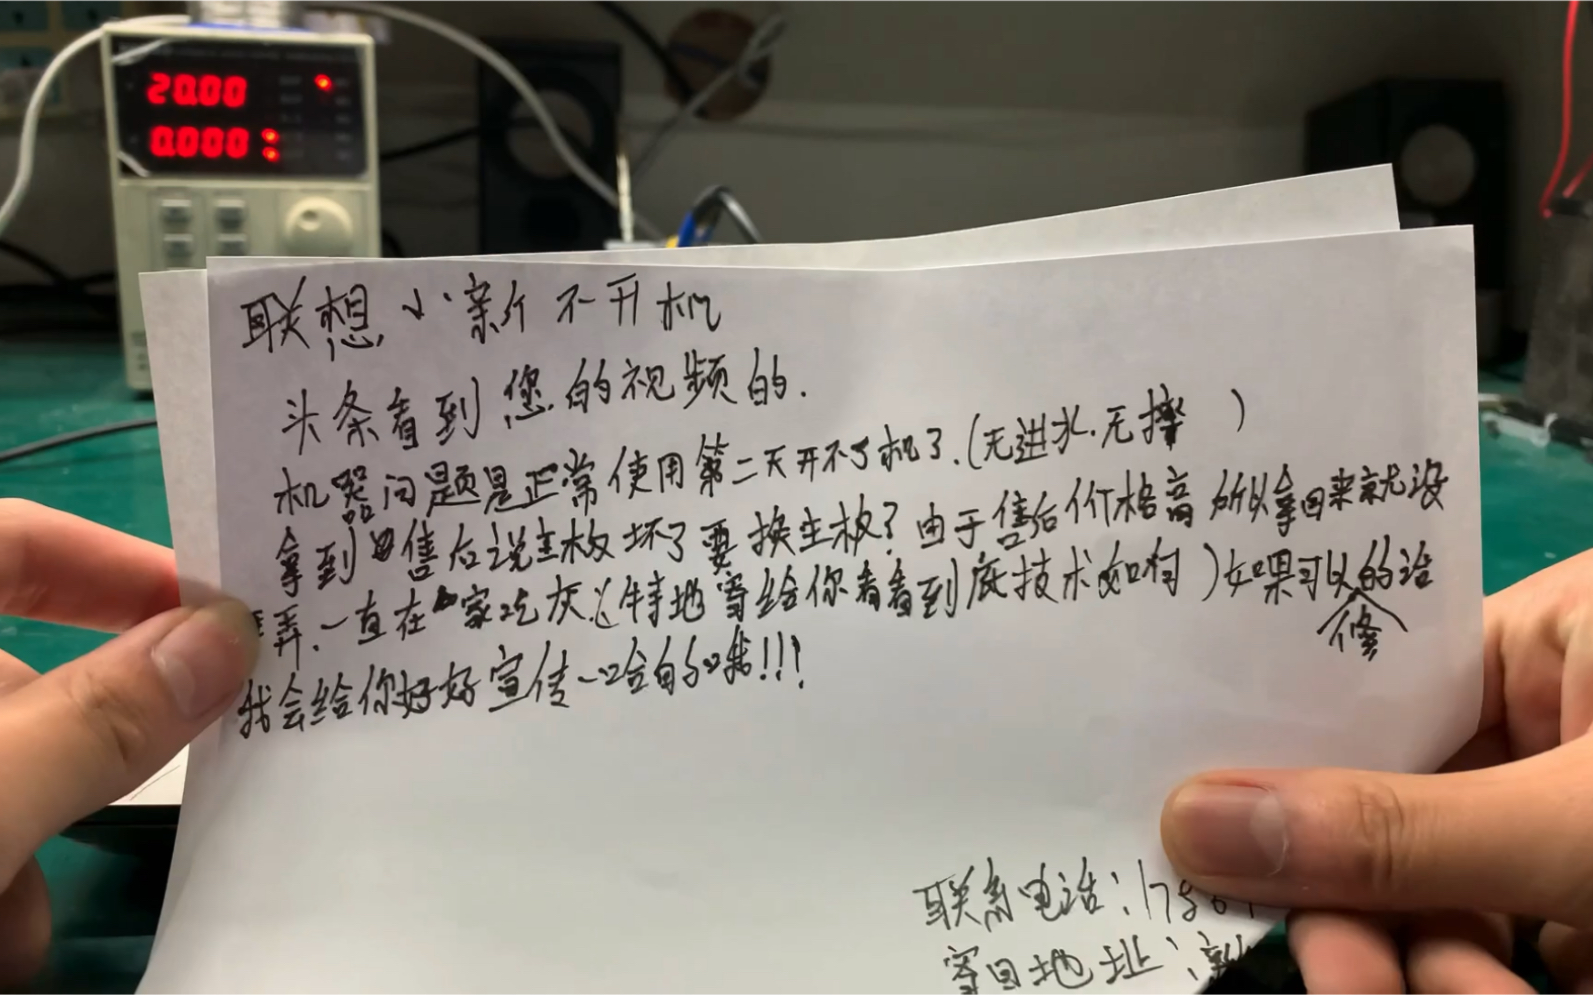 20.00
0.000
联想小新不开机
头条看到您的视频的.
机器问题是正常使用第二天开不了机了.(无进水.无摔 )
拿到售后说主板坏了要换主板?由于售后价格高所以拿回来就没
弄.一直在家吃灰.(特地寄给你看看到底技术如何)如果可以修的话
我会给你好好宣传一哈的哦!!!
联系电话:1786
寄回地址:新